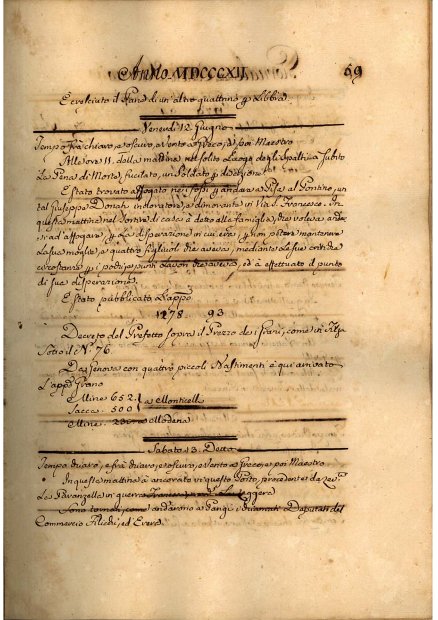 Anno MDCCCXII. 69
E cresciuto il Pane di un' altro quattrino p Libbra.
Venerdì 12. Giugno
Tempo frà chiaro, e oscuro, e Vento a Greco, e poi Maestro
Alle ore 11. della mattina nel solito Luogo degli Spalti, a Subito
La Pena di Morte, fucilato, un Soldato p diserzione
E Stato trovato affogato nei fossi p andare a Pisa al Pontino, un
tal Giuseppe Donati indoratore, e dimorante in Via S. Francesco. In
questa mattina nel Sortire di casa à detto alla famiglia, che voleva andar
si ad affogare p La disperazione in cui era, p non poter mantenere
La sue moglie, e quattro figliuoli che aveva, mediante La sue critiche
circostanze, p i pochi Lavori che aveva, ed à effettuato il punto
di sue disperazione.
E Stato pubblicato L'appo
1278. 93
Decreto del Prefetto sopra il Prezzo dei Grani, come in
Sotto il N.° 76.
Da Genova con quattro piccoli Bastimenti è qui arrivato
L'app Grano
Mine 652.
Sacca 500 a Monticelli
Mine a Modena
Sabato 13. Detto
Tempo chiaro, e frà chiaro, e oscuro, e Vento a Greco, e poi Maestro
In questa mattina à ancorato in questo Porto, procedente da
La Paranzella in guerra
Sono tornati, come andarono a Parigi i chiamati Deputati del
Commercio Alliedi, ed Errera.